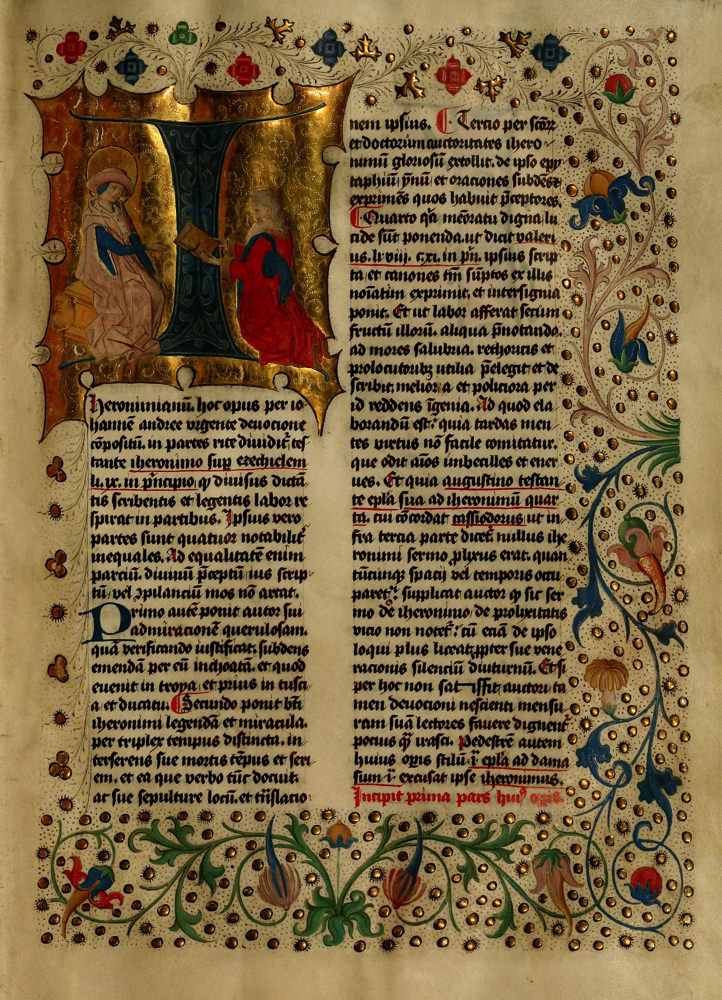 Iheronimianū. hoc opus per io
hannem andree vrgente deuocione
cōpositū. in partes rite diuidit². tes
tante iheronimo sup² ezechielem
li. ix. in p²ncipio ꝙ diuisus dictā
tis scribentis et legentis labor re
spirat in partibus. Ipsius vero
partes sunt quatuor notabilit²
inequales. Ad equalitatem enim
parciū. diuinū p²ceptū ius scrip
tū vel ꝯpilancium mos non artat.
Primo autē ponit autor sui
admiracionē querulosam.
quā verificando iustificat. subdens
emendā per eū inchoatā. et quod
euenit in troya. et prius in tusci
a et ducatu. Secundo ponit bt̄i
iheronimi legendā et miracula.
per triplex tempus distincta. in
terserens sue mortis tēpus et seri
em. et ea que verbo tūc docuit.
ac sue sepulture locū. et trāslacio
nem ipsius. Tercio per sctōr²
et doctorum auctoritates ihero
nimū gloriosū extollit. de ipso epy
taphiū p²uū et oraciones subdēs
exprimēs quos habuit p²ceptores.
Quarto q²a memoratu digna lu
cide sūt ponenda. ut dicit valeri
us. li. viij. c. xi. in p²n. ipsius scrip
ta et canones tm̄ sūptos ex illis
noīatim exprimit. et intersignia
ponit. Et ut labor afferat secum
fructū illorū. aliqua p²notando.
ad mores salubria. rethoricis et
prolocutoribꝫ utilia p²elegit et de
scribit. meliora et policiora per
id reddens ingenia. Ad quod ela
borandū est². quia tardas men
tes virtus non facile comitatur.
que odit aīos imbecilles et ener
ues. Et quia augustino testan
te ep̄la sua ad iheronimū quar
ta. cui cōcordat cassiodorus ut in
fra tercia parte dicet². nullus ihe
ronimi sermo ꝓlixus erat. quan
tūcunque spacij vel temporis occu
paret². supplicat auctor ꝙ sic ser
mo de iheronimo de prolixitatis
vicio non notet². cū eciā de ipso
loqui plus liceat. ꝓpter sue vene
racionis silencium diuturnū. Et si
per hoc non satissit auctori. ta
men deuocioni nescienti mensu
ram suā lectores fauere dignent²
pocius q² irasci. Pedestrem autem
huius op²is stilū ī ep̄la ad dama
sum ī excusat ipse iheronimus.
Incipit prima pars hui² op²is.